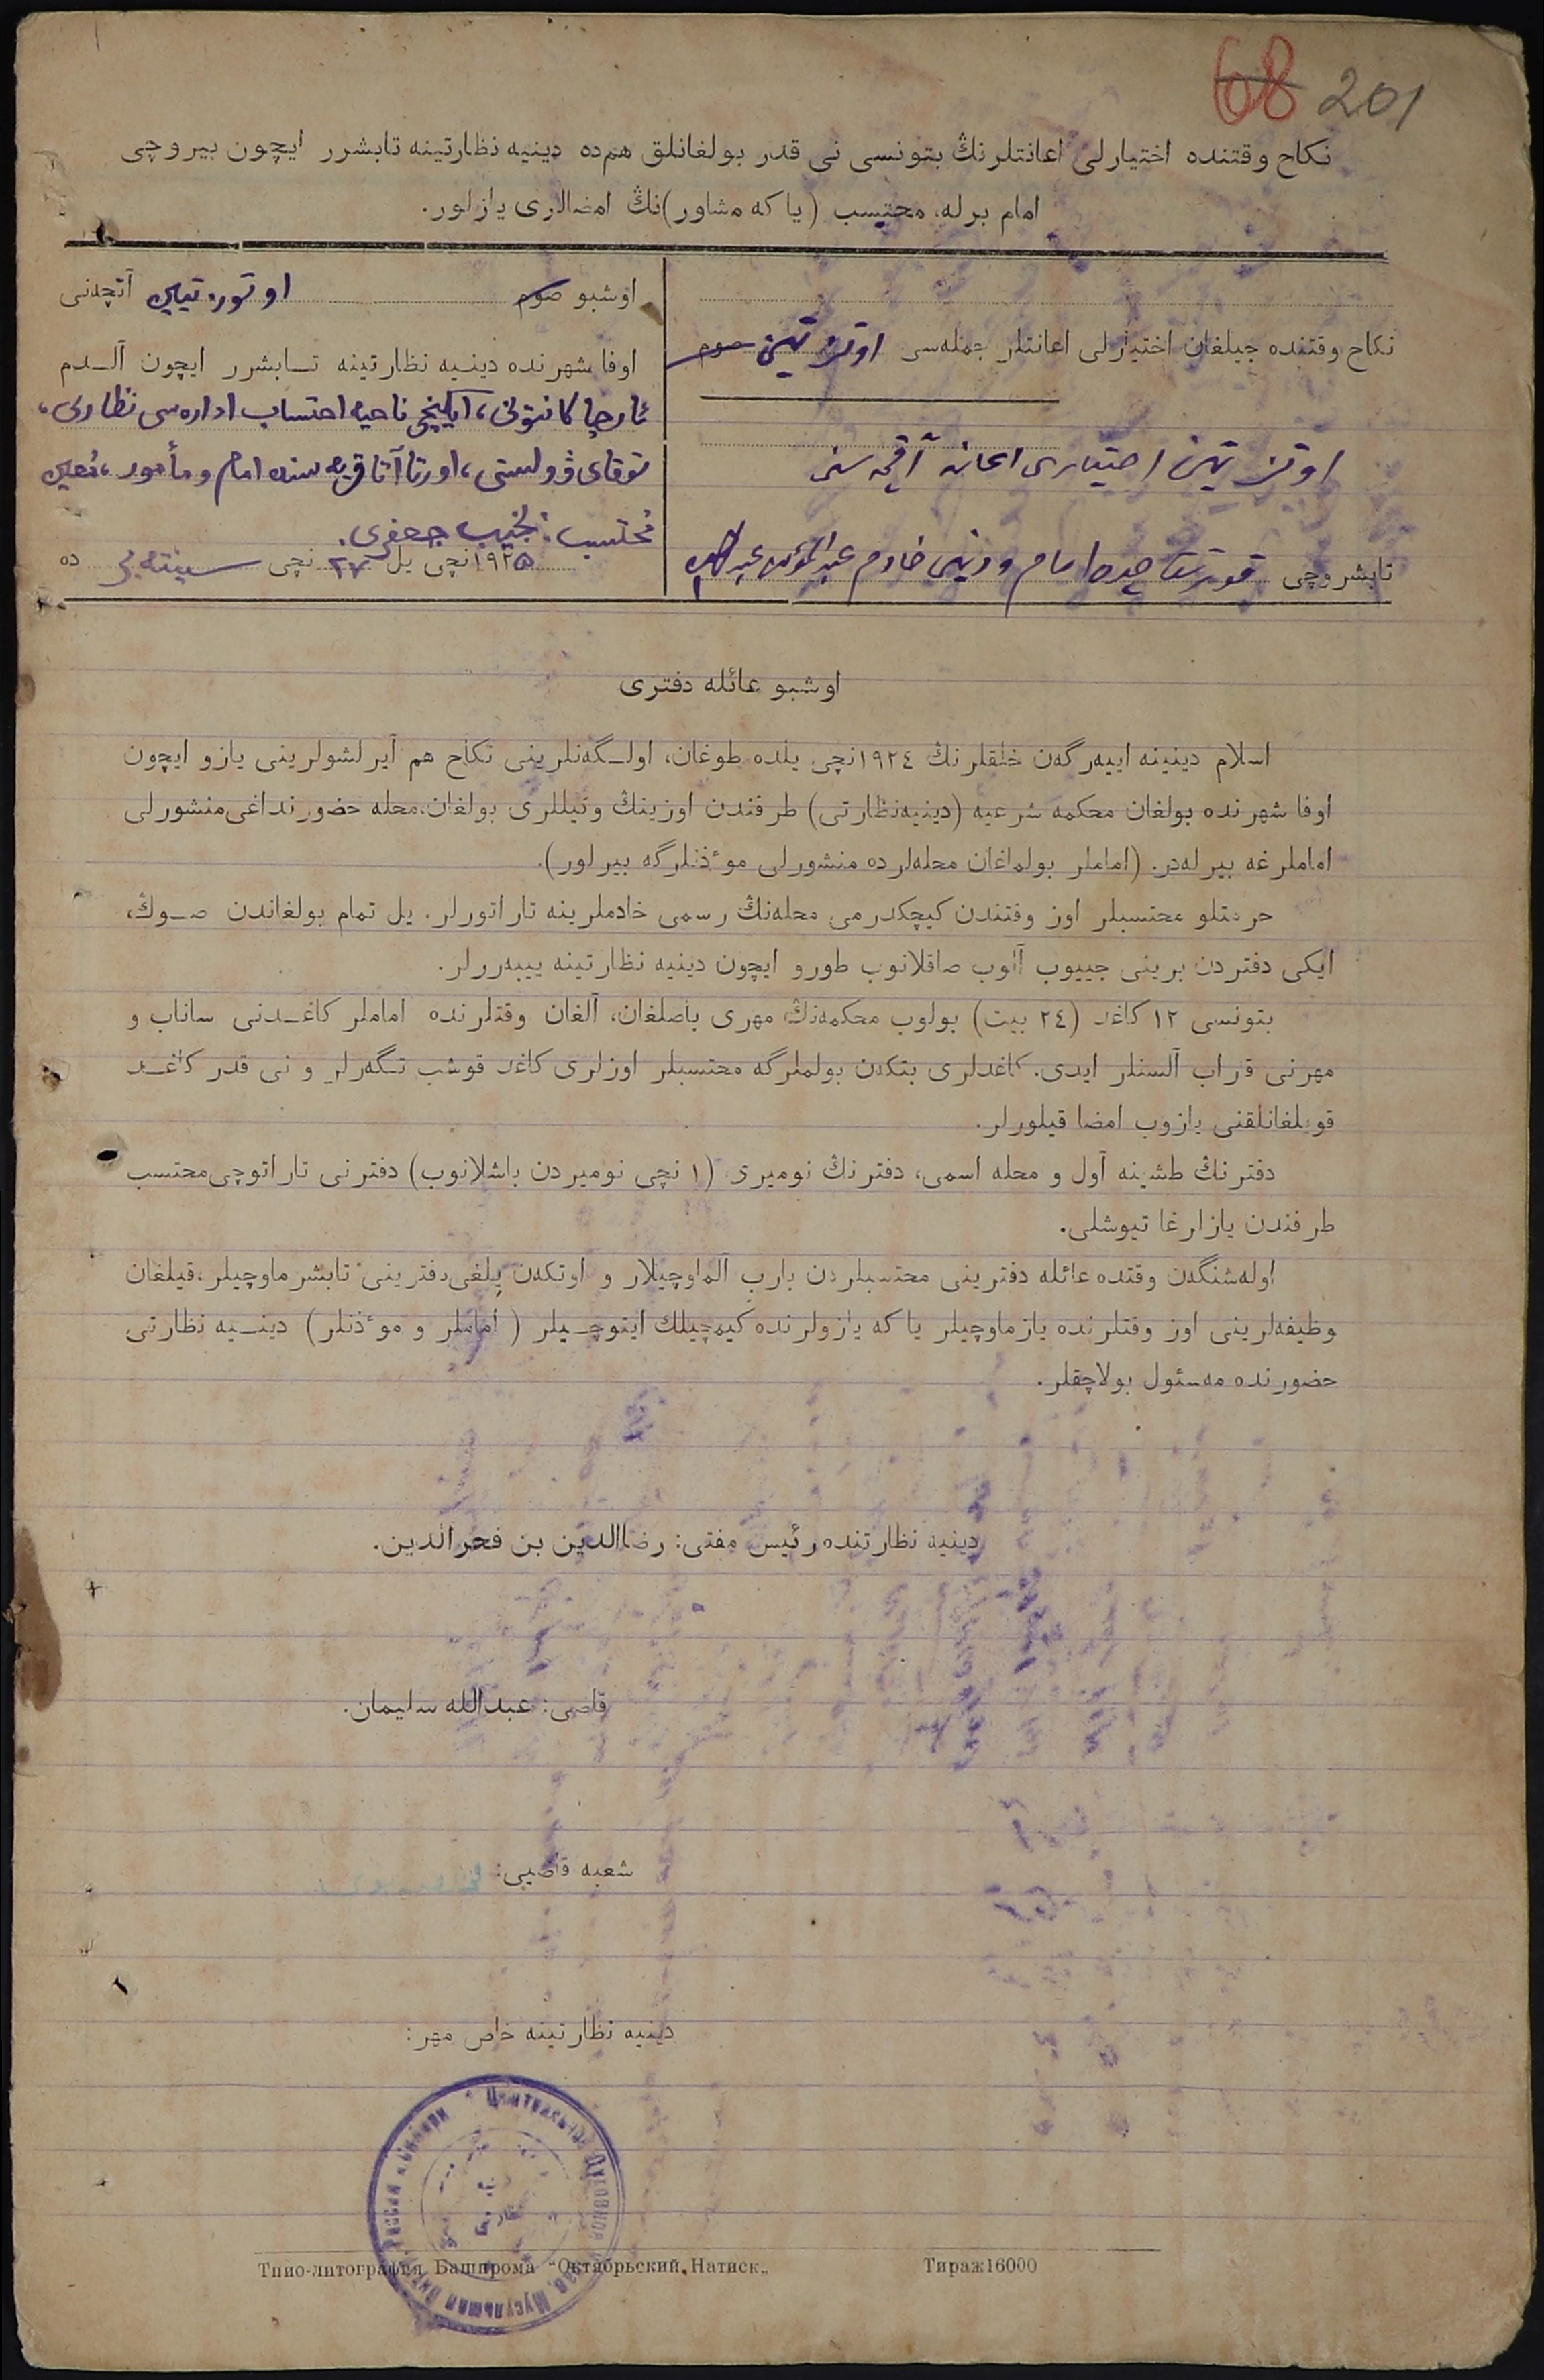 68 201
نكاح وقتنده اختيارلى اعانتلرنڭ بتونسى نى قدر بولغانلق هم‌ده دينيه نظارتينه تابشرر ايچون بيروچى
امام برله، محتسب (يا كه مشاور)نڭ امضالارى يازلور.
نكاح وقتنده جيلغان اختيارلى اعانتلر جمله‌سى اوتز تين صوم
اوتز تين اختيارى اعانه آقچه سنى
تابشروچى امام و دينى خادم
اوشبو صوم اوتوز تيين آقچه‌نى
اوفا شهرنده دينيه نظارتينه تابشرر ايچون آلدم
كانتونى، ايكنچى ناحيه احتساب اداره‌سى نظارتى،
توقاى ۋولستى، اورتا آتا قريه سنده امام و مأمور، معين
محتسب: نجيب جعفرى.
١٩٢٥نچى يل ٢٧ نچى سينتەبر ده
اوشبو عائله دفترى
اسلام دينينه اييەرگەن خلقلرنڭ ١٩٢٤نچى يلده طوغان، اولگەنلرينى نكاح هم آيرلشولرينى يازو ايچون
اوفا شهرنده بولغان محكمه شرعيه (دينيه‌نظارتى) طرفندن اوزينڭ وكيللرى بولغان، محله حضورنداغى منشورلى
اماملرغه بيرلەدر. (اماملر بولماغان محله‌لرده منشورلى موءذنلرگه بيرلور).
حرمتلو محتسبلر اوز وقتندن كيچكدرمى محله‌نڭ رسمى خادملرينه تاراتورلر. يل تمام بولغاندن صوڭ،
ايكى دفتردن برينى جييوب آلوب صاقلانوب طورو ايچون دينيه نظارتينه ييبەررلر.
بتونسى ١٢ كاغد (٢٤ بيت) بولوب محكمه‌نڭ مهرى باصلغان، آلغان وقتلرنده اماملر كاغدنى ساناب و
مهرنى قاراب آلسنلر ايدى. كاغدلرى بتكەن بولملرگه محتسبلر اوزلرى كاغد قوشب تگەرلر و نى قدر كاغد
قويلغانلقنى يازوب امضا قيلورلر.
دفترنڭ طشينه آول و محله اسمى، دفترنڭ نوميرى (١ نچى نوميردن باشلانوب) دفترنى تاراتوچى محتسب
طرفندن يازارغا تيوشلى.
اولەشنگەن وقتده عائله دفترينى محتسبلردن بارب آلماوچيلار و اوتكەن يلغى دفترينى تابشرماوچيلر، قيلغان
وظيفه‌لرينى اوز وقتلرنده يازماوچيلر يا كه يازولرنده كيمچيلك ايتوچيلر (اماملر و موءذنلر) دينيه نظارتى
حضورنده مه‌سئول بولاچقلر.
دينيه نظارتنده رئيس مفتى: رضاالدين بن فخرالدين.
قاضى: عبدالله سليمان.
شعبه قاضيى:
دينيه نظارتينه خاص مهر:
Типо-литография Башпрома “Октябрьский Натиск„ Тираж16000